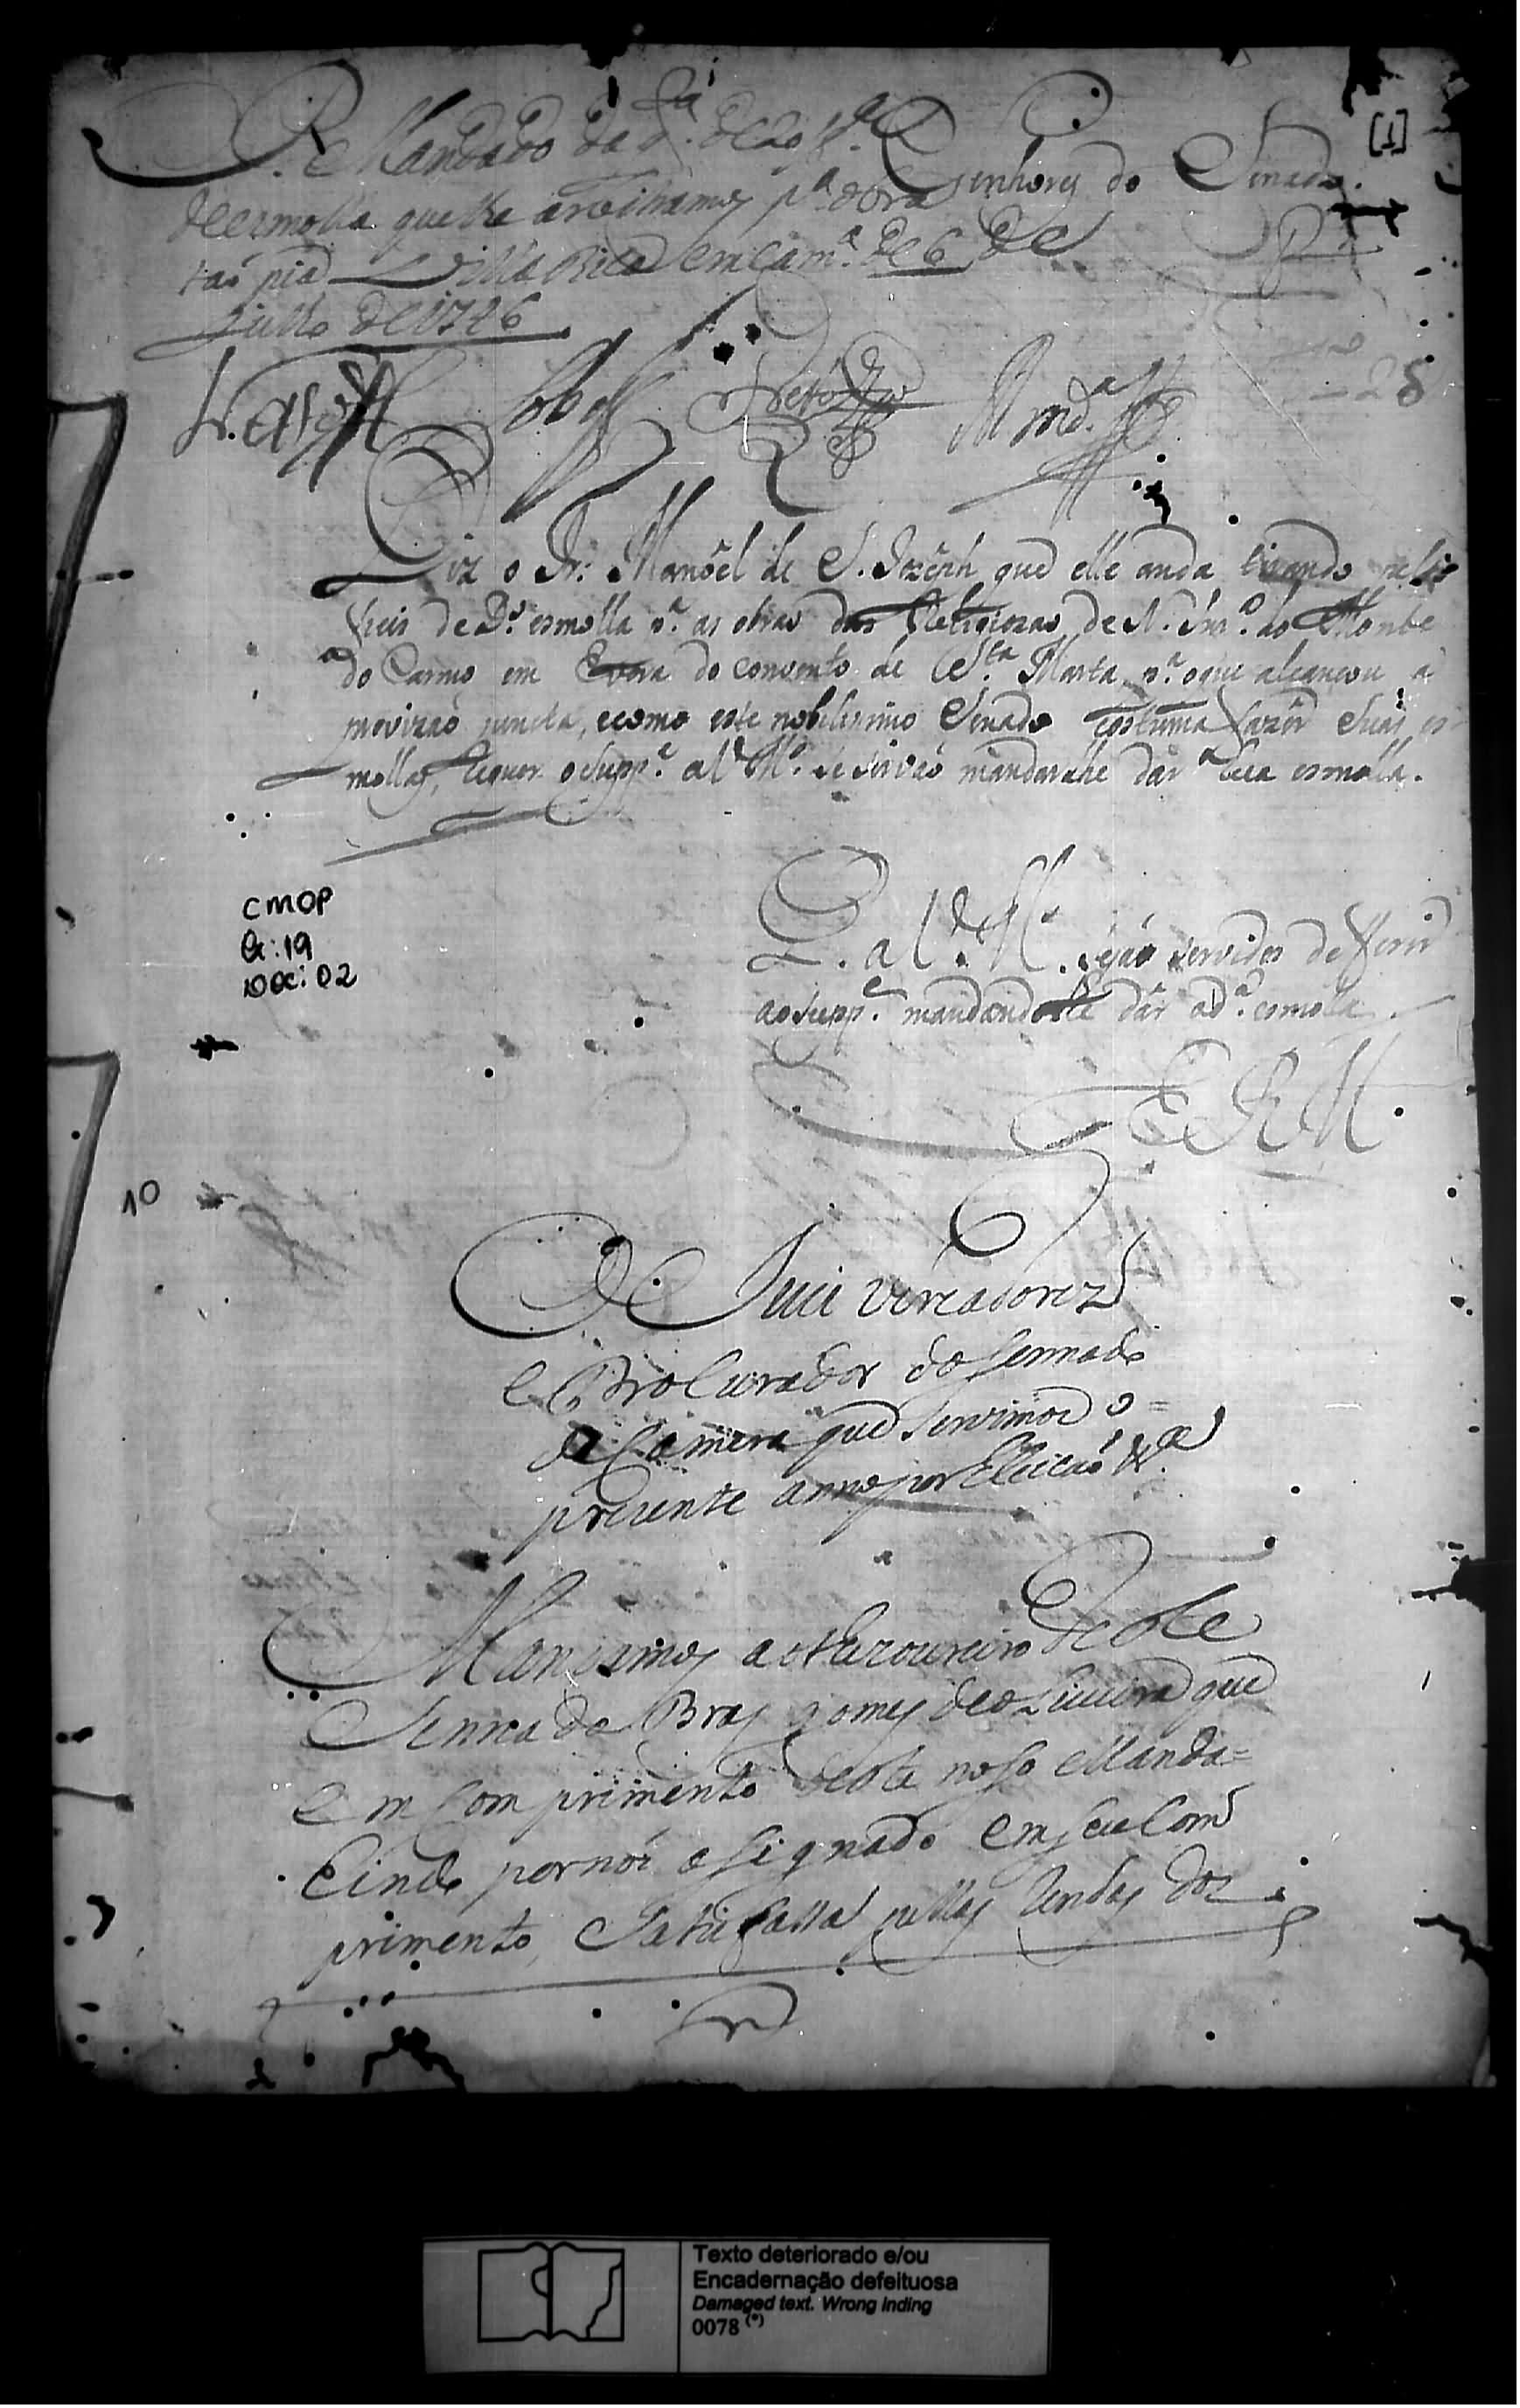 [1]
Senhores do Senado
P. Mandado da qª. de 20/8ª
de esmolla que lhe arbitramos pª. obra
taó pia Villa Rica em camª. de 6 de
Julho de 1746
28
Lobo
Diz o Fr. Manoël de S. Jozêph que elle anda tirando pelos
fieis de Dº. esmolla pª. as obras das Religiozas de N. Snrª. do Monte
do Carmo em Evora do convento de Sta. Marta, pª. o que alcançou a
provizaó juncta, e como este nobilissimo Senado costuma fazêr suas es-
mollas, requer o Suppe. a Vs. Ms. se sirvaó mandarlhe dár a sua esmolla.
CMOP
Cx: 19
DOC: 02
P. a Vs. Ms. sejaó servidos deferir
ao Suppe. mandandolhe dár a dª. esmolla.
E R M
10
O Juis Vereadorez
e Procurador do Sennado
da Camera que servimos o =
prezente anno por Eleicaó &ª
Mandamos ao thezoureiro deste
Sennado Bras Gomes de oLiveira que
em Comprimento deste noso Manda=
Eindo por nós asignado em seu Com
primento, Satisfassa pellas Rendas dos
Texto deteriorado e/ou
Encadernação defeituosa
Damaged text. Wrong inding
0078 (*)